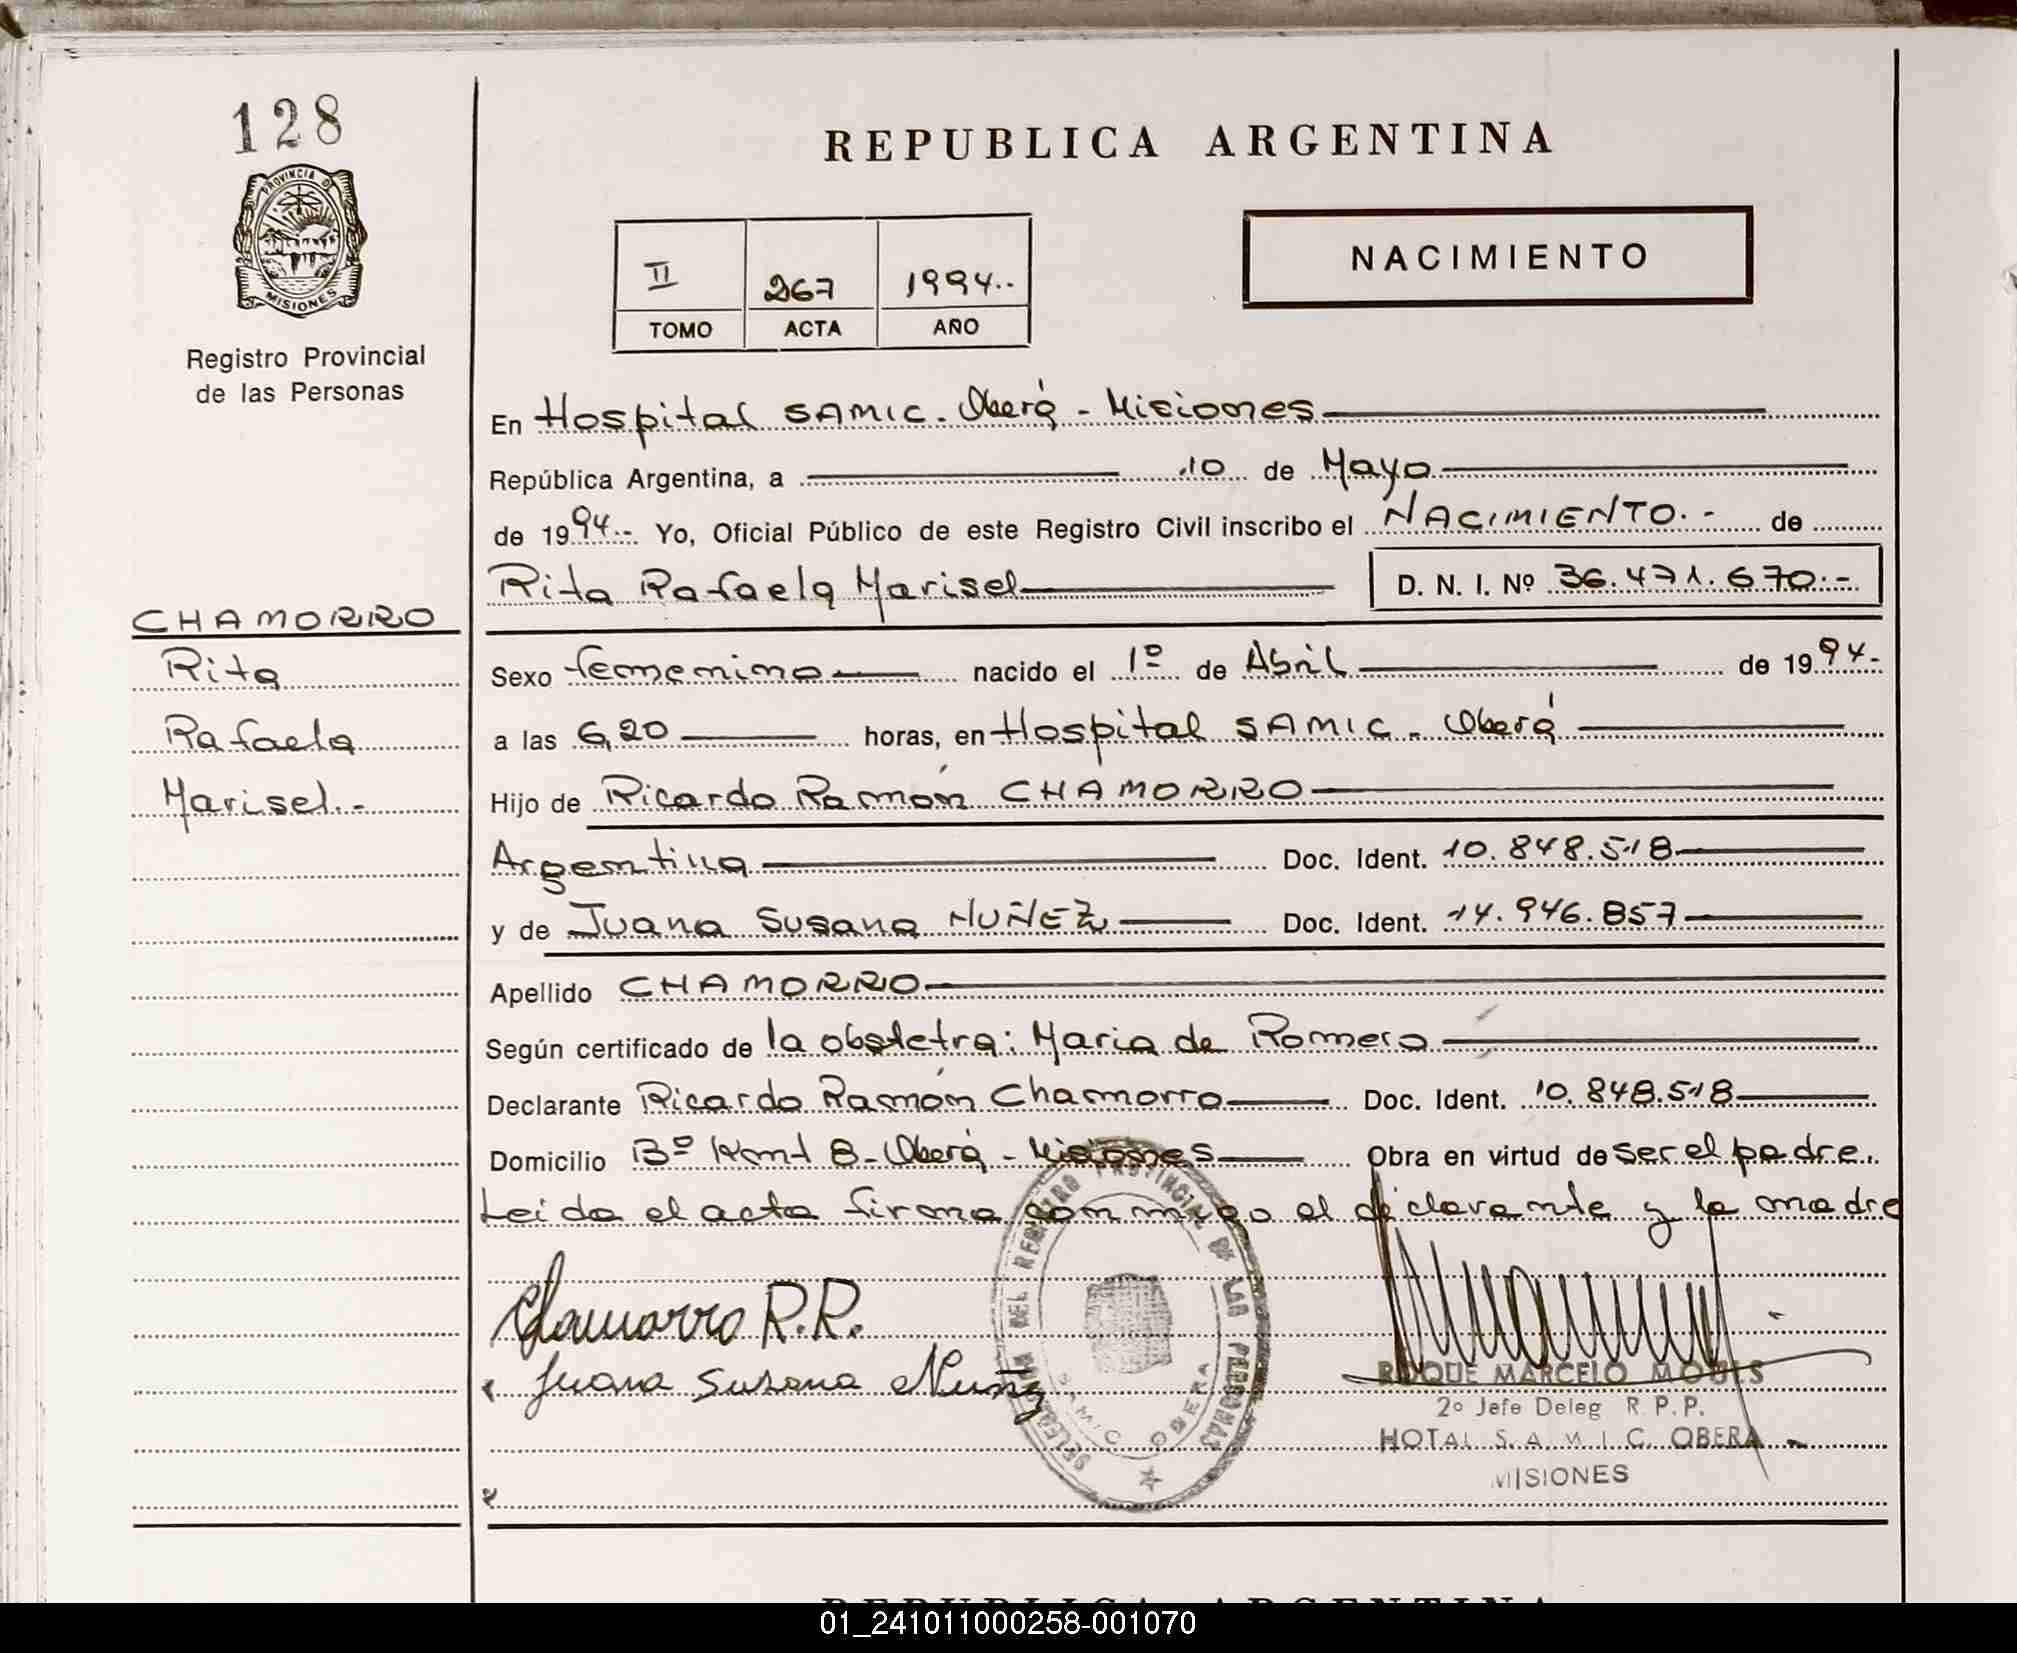 128
PROVINCIA DE
MISIONES
Registro Provincial
de las Personas
REPUBLICA ARGENTINA
II 267 1994..
TOMO ACTA AÑO
NACIMIENTO
En Hospital SAMIC. Oberá - Misiones
República Argentina, a 10 de Mayo
de 1994.- Yo, Oficial Público de este Registro Civil inscribo el NACIMIENTO.- de
Rita Rafaela Marisel D. N. I. Nº 36.471.670.-
CHAMORRO
Rita
Rafaela
Marisel.-
Sexo femenino nacido el 1º de Abril de 1994-
a las 6,20 horas, en Hospital SAMIC. Oberá
Hijo de Ricardo Ramón CHAMORRO
Argentina Doc. Ident. 10.848.518
y de Juana Susana NUÑEZ Doc. Ident. 14.946.857
Apellido CHAMORRO
Según certificado de la obstetra: Maria de Romero
Declarante Ricardo Ramón Chamorro Doc. Ident. 10.848.518
Domicilio Bº 8 - Oberá - Misiones Obra en virtud de ser el padre.
Leida el acta firma conmigo el declarante y la madre
Chamorro R.R.
Juana Susana Nuñez
DELEGACION DEL REGISTRO PROVINCIAL DE LAS PERSONAS
SAMIC OBERA
ROQUE MARCELO
2º Jefe Deleg R.P.P.
HOTAL S.A.M.I.C. OBERA
MISIONES
REPUBLICA ARGENTINA
01_241011000258-001070